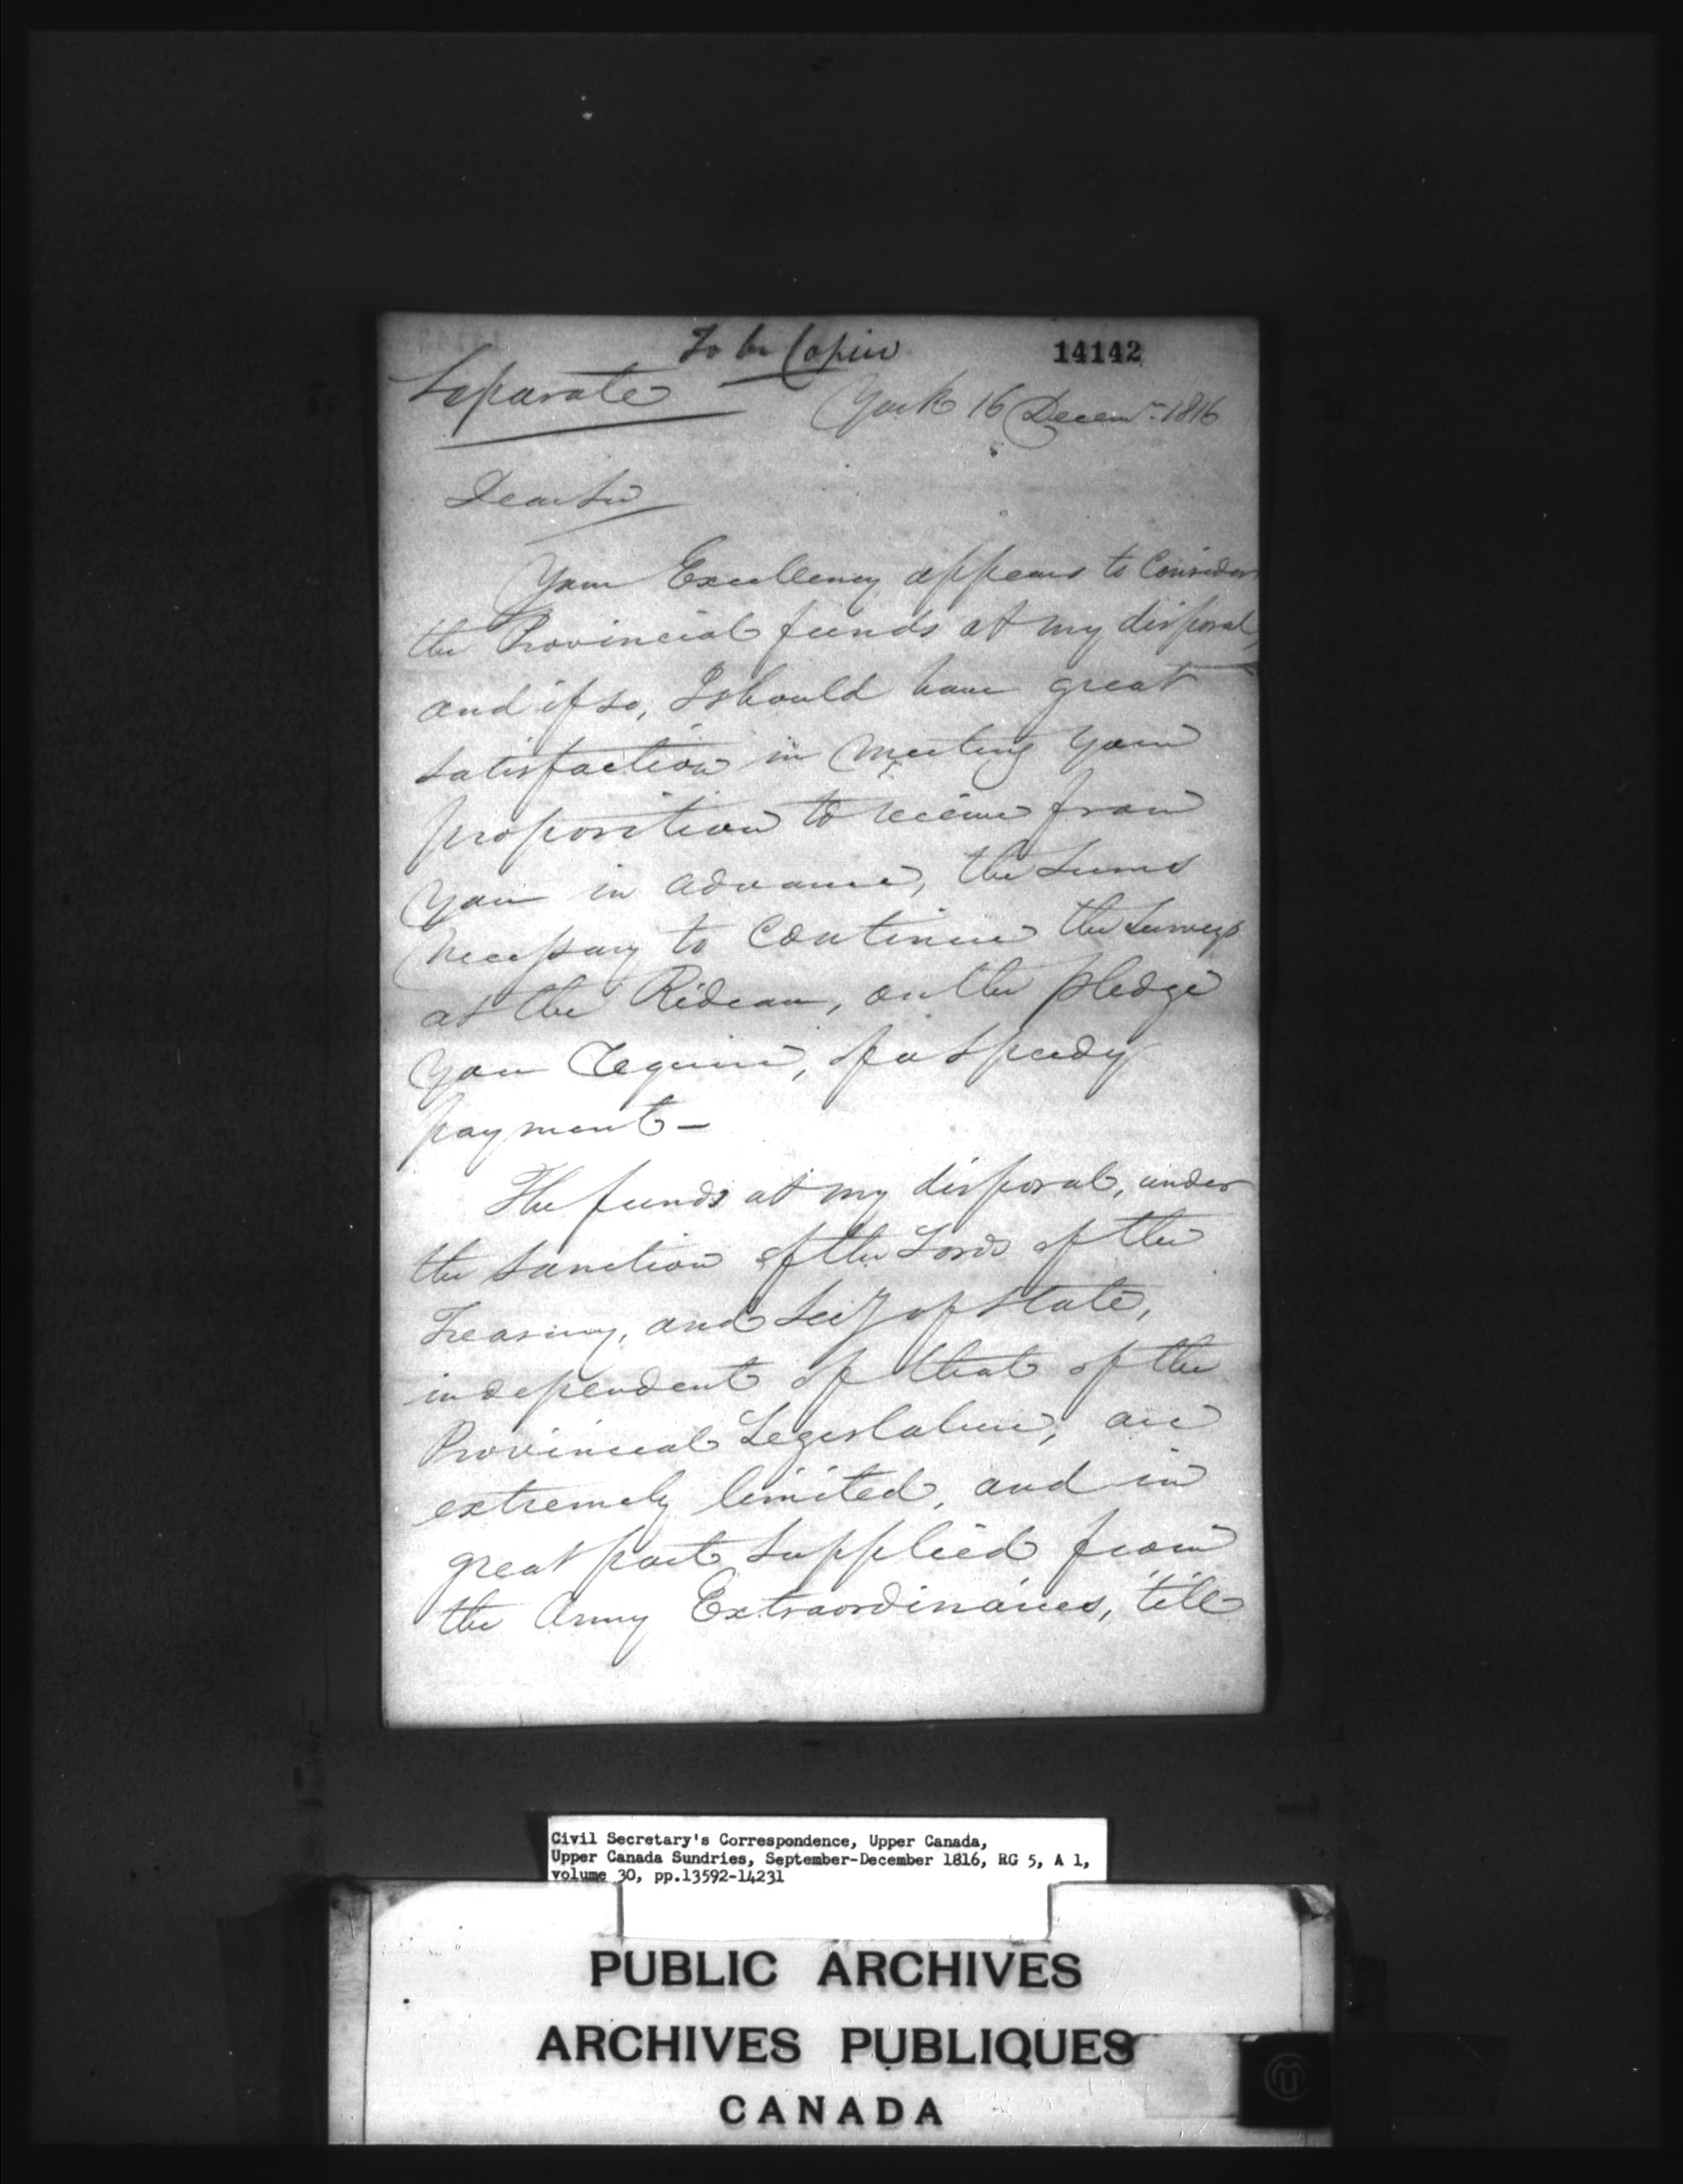 To be Copied
14142
Separate
York 16 Decemr. 1816
Dear Sir
Your Excellency appears to Consider
the Provincial funds at my disposal,
and if so, I should have great
satisfaction in meeting your
proposition to receive from
you in advance, the Sums
necessary to Continue the Surveys
at the Rideau, on the pledge
you require, of a speedy
payment —
The funds at my disposal, under
the Sanction of the Lords of the
Treasury, and Secy of State,
independent of that of the
Provincial Legislature, are
extremely limited, and in
great part supplied from
the Army Extraordinaries, 'till
Civil Secretary's Correspondence, Upper Canada,
Upper Canada Sundries, September-December 1816, RG 5, A 1,
volume 30, pp.13592-14231
PUBLIC ARCHIVES
ARCHIVES PUBLIQUES
CANADA